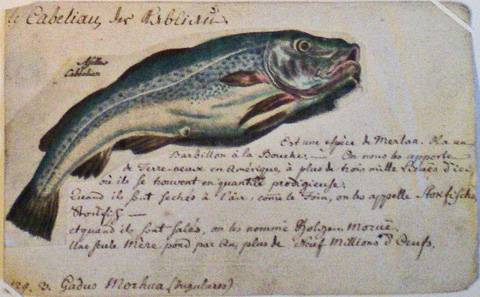 le Cabeliau, der Kabliau
Asellus
Cabelian
Est une espèce de Merlan. Il a un
Barbillon à la Bouche. — On nous les apporte
de Terre-neuve en Amérique, à plus de trois mille Lieuës d'ici,
où ils se trouvent en quantité prodigieuse.
Quand ils sont sechés à l'air, come le foin, on les appelle Stockfische
Stockfisch —
et quand ils sont salés, on les nomme Morue.
Une seule Mere, pond par An, plus de Neuf Millions d'Oeufs.
129. b. Gadus Morhua (Singularis)